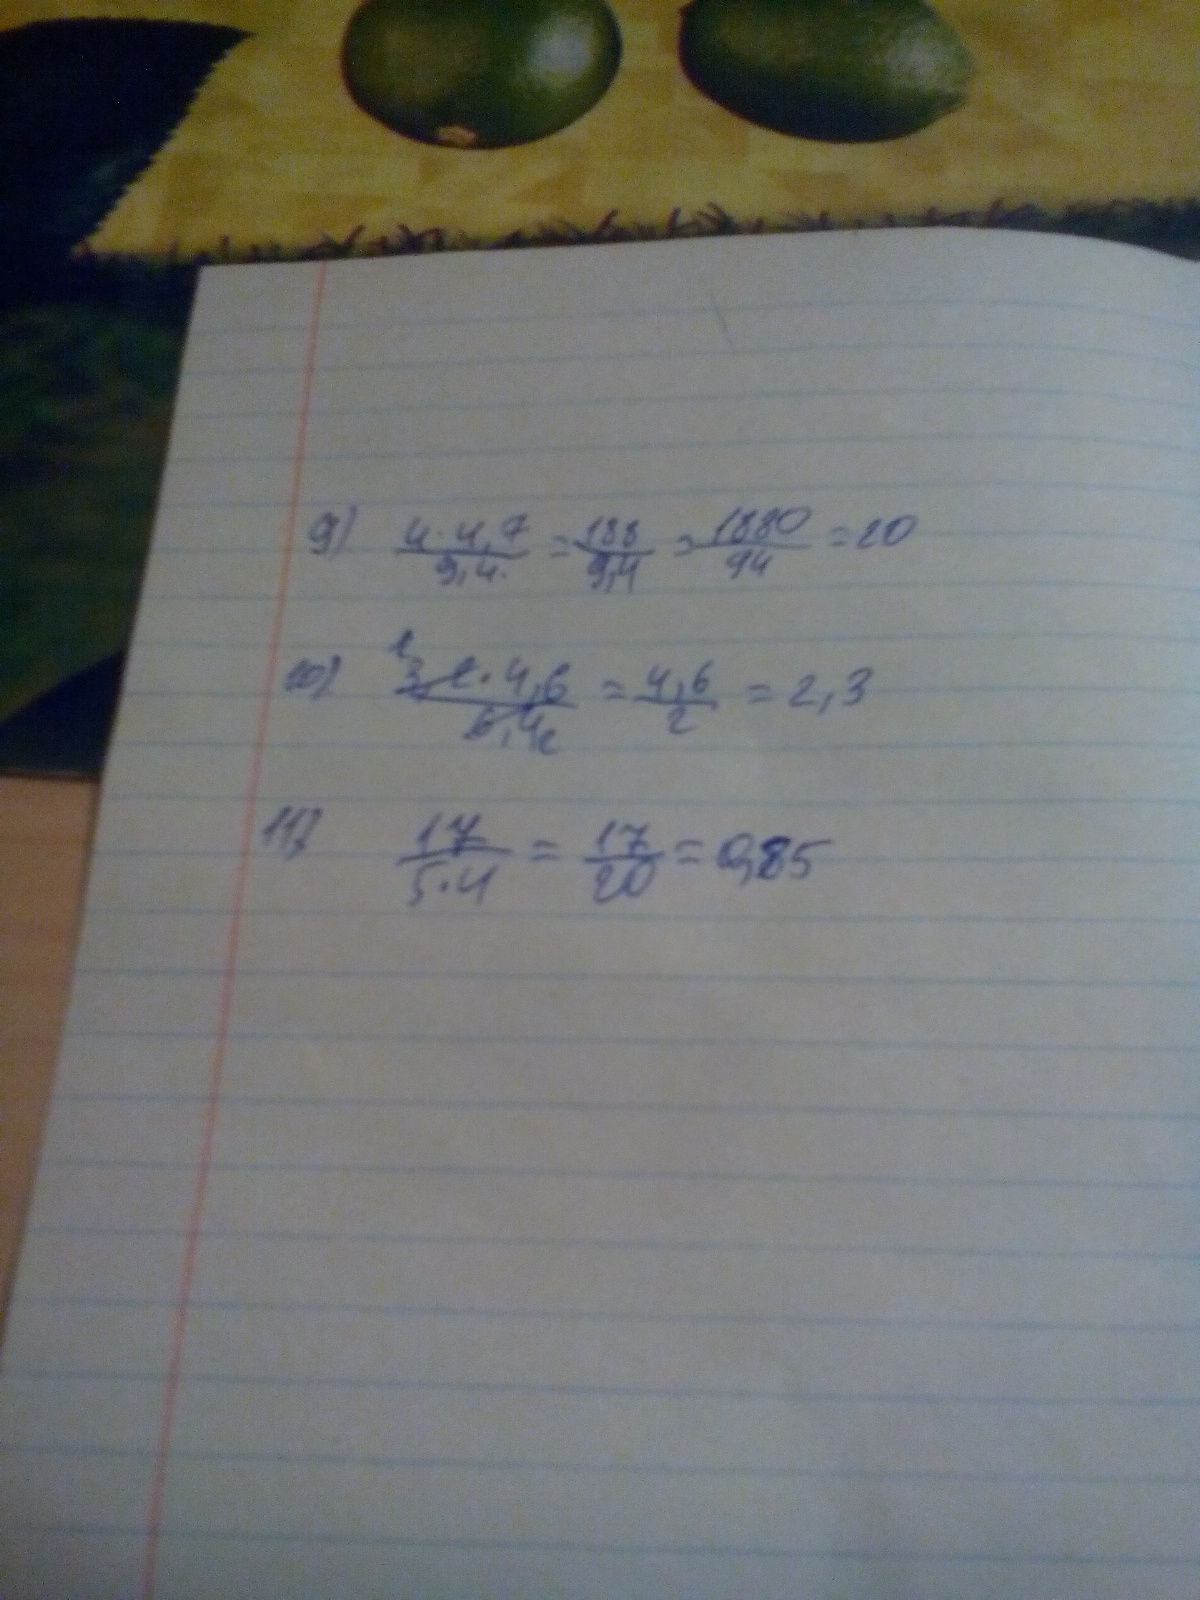 9) 4·4,7/9,4 = 188/9,4 = 1880/94 = 20
10) 3,2·4,6/6,4 = 4,6/2 = 2,3
11) 17/5·4 = 17/20 = 0,85